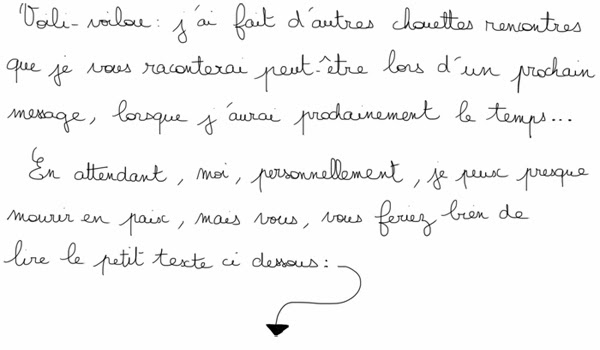 Voili-voilou : j'ai fait d'autres chouettes rencontres
que je vous raconterai peut-être lors d'un prochain
message, lorsque j'aurai prochainement le temps...
En attendant, moi, personnellement, je peux presque
mourir en paix, mais vous, vous feriez bien de
lire le petit texte ci dessous :